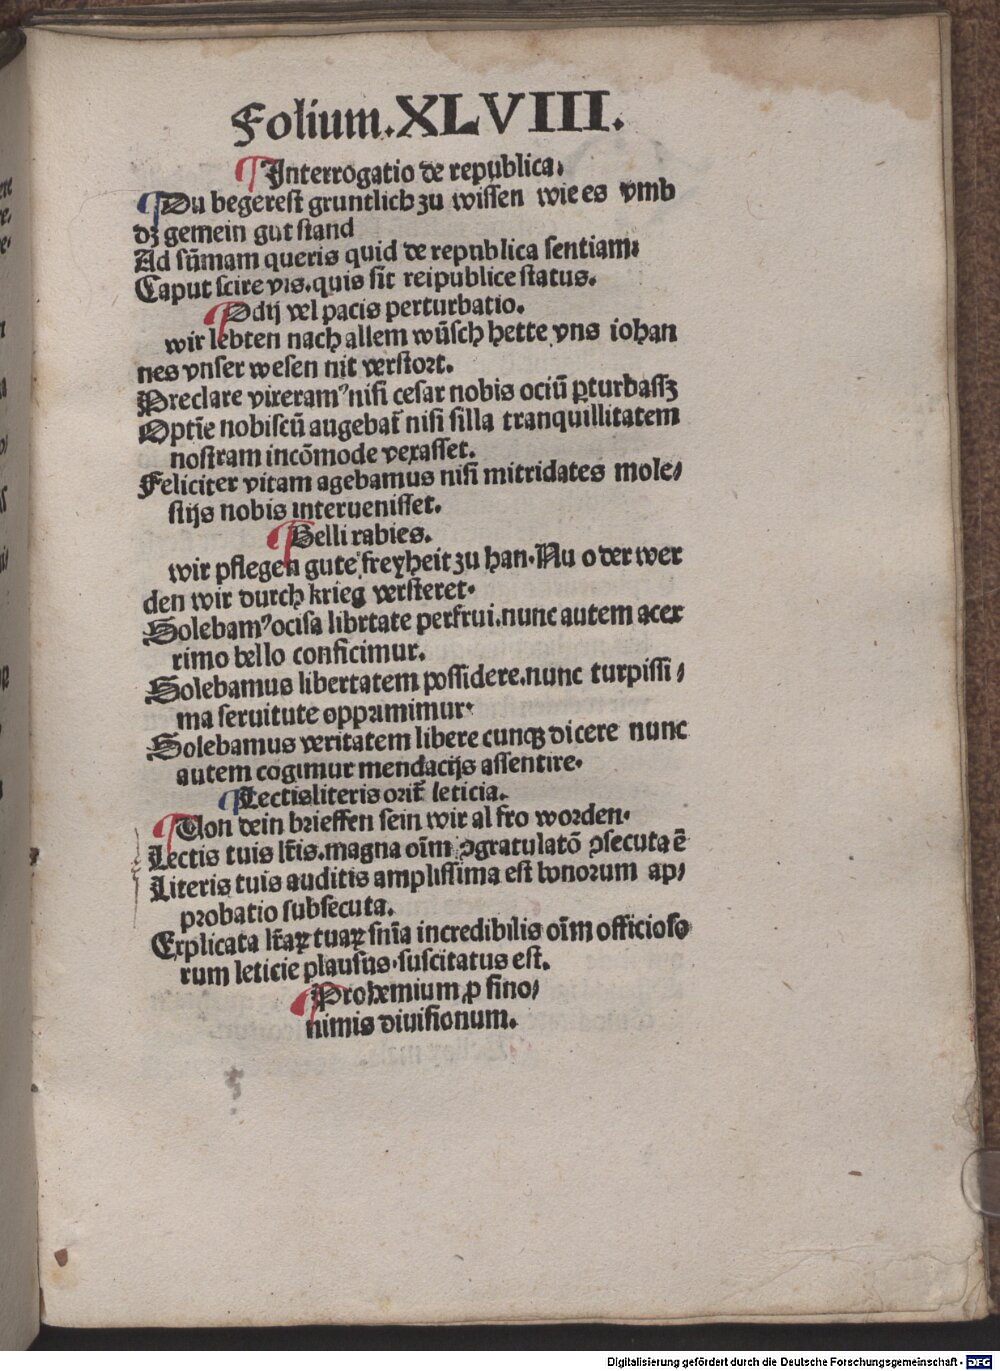 Folium.XLVIII.
¶Interrogatio de republica.
¶Du begerest gruntlich zu wissen wie es vmb
dz gemein gut stand
Ad sūmam queris quid de republica sentiam.
Caput scire vis.quis sit reipublice status.
¶Odij vel pacis perturbatio.
wir lebten nach allem wūsch hette vns iohan
nes vnser wesen nit verstort.
Preclare vixeramꝰ nisi cesar nobis ociū ꝑturbassꝫ
Optīe nobiscū augebat̄ nisi silla tranquillitatem
nostram incōmode vexasset.
Feliciter vitam agebamus nisi mitridates mole⸗
stijs nobis interuenisset.
¶Belli rabies.
wir pflegen gute freyheit zu han.Nu oder wer
den wir durch krieg versteret.
Solebamꝰ ocisa librtate perfrui.nunc autem acer
rimo bello conficimur.
Solebamus libertatem possidere.nunc turpissi⸗
ma seruitute opprimimur.
Solebamus veritatem libere cunqꝫ dicere nunc
autem cogimur mendacijs assentire.
¶Lectis literis orit̄ leticia.
¶Uon dein brieffen sein wir al fro worden.
Lectis tuis lr̄is.magna oīm ꝯgratulatō ꝯsecuta ē
Literis tuis auditis amplissima est bonorum ap⸗
probatio subsecuta.
Explicata lr̄aꝝ tuaꝝ snīa incredibilis oīm officioso
rum leticie plausus.suscitatus est.
¶Prohemium ꝓ sino⸗
nimis diuisionum.
Digitalisierung gefördert durch die Deutsche Forschungsgemeinschaft - DFG